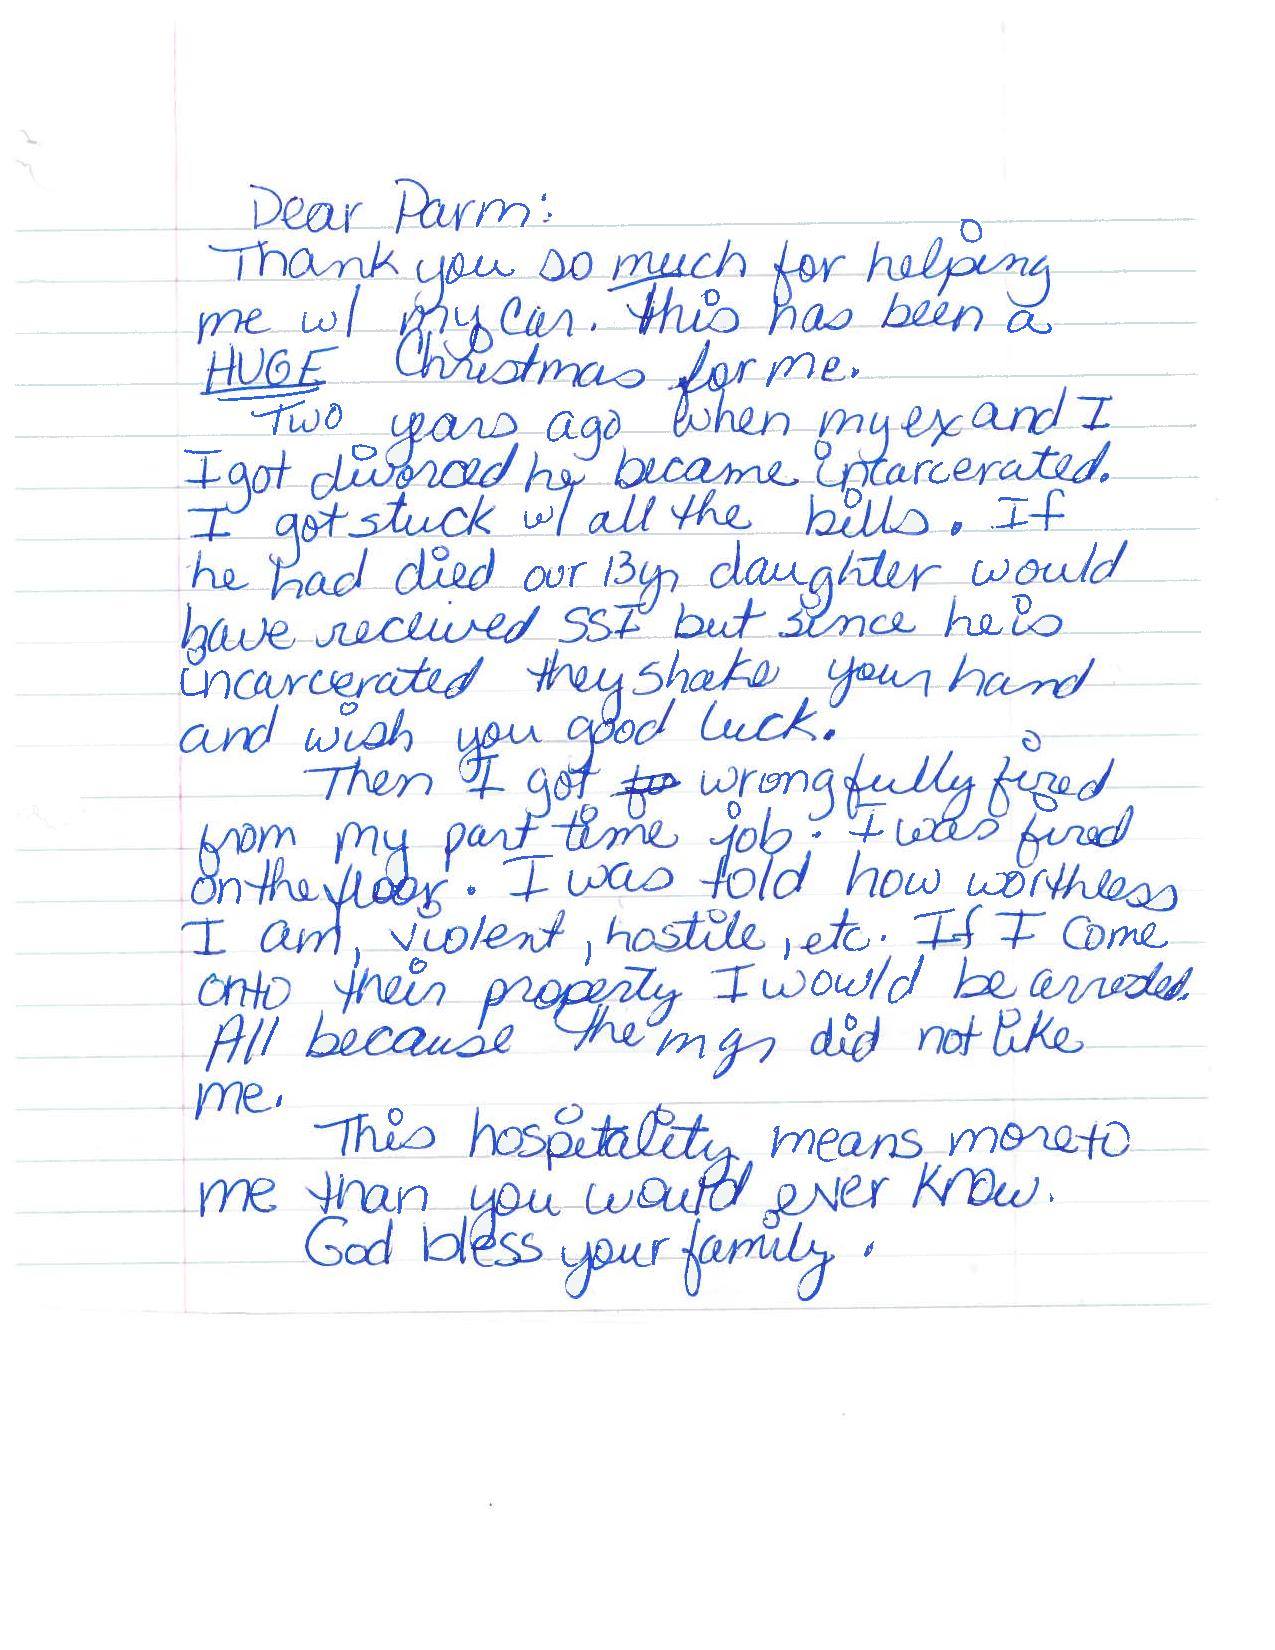 Dear Parm:
Thank you so much for helping
me w/ my car. this has been a
HUGE Christmas for me.
Two years ago when my ex and I
I got divorced he became incarcerated.
I got stuck w/ all the bills. If
he had died our 13yr daughter would
have received SSI but since he is
incarcerated they shake your hand
and wish you good luck.
Then I got to wrongfully fired
from my part time job. I was fired
on the floor. I was told how worthless
I am, violent, hostile, etc. If I come
onto their property I would be arrested.
All because the mgr did not like
me.
This hospitality means more to
me than you would ever know.
God bless your family.